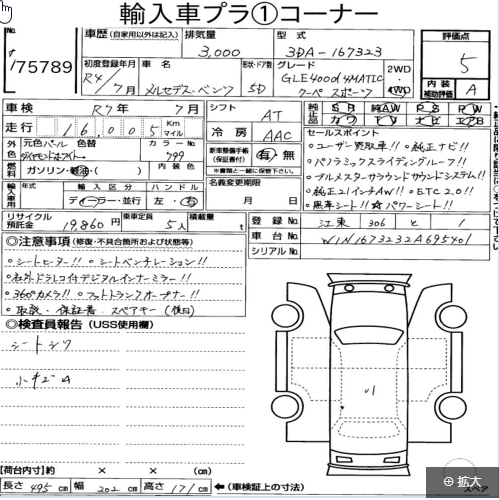 輸入車プラ①コーナー
No.
75789
車歴 (自家用以外は記入)
排気量
3,000
型式
3DA-167323
評価点
5
初度登録年月
R4/7月
車名
メルセデス・ベンツ
形状・ドア数
5D
グレード
GLE400d 4MATIC
クーペ スポーツ
2WD
4WD
内装
補助評価
A
車検
R7年 7月
シフト
AT
純正品
SR
純AW
PS
PW
カワ
TV
ナビ
エアB
走行
16,005
Km
マイル
冷房
AAC
セールスポイント
外色
元色パール 色替
ダイヤモンドホワイト
カラーNo.
799
燃料
ガソリン・軽油・( )
内装色
新車整備手帳
(保証書付)
有・無
※書類と一緒に保管下さい。
名義変更期限
月 日
輸入車用
年式
輸入区分
ディーラー・並行
ハンドル
左・右
○ユーザー買取車!! ○純正ナビ!!
○パノラミックスライディングルーフ!!
○ブルメスターサラウンドサウンドシステム!!
○純正21インチAW!! ○ETC2.0!!
○黒革シート!! ☆パワーシート!!
リサイクル
預託金
19,860円
乗車定員
5人
積載量
t
登録No.
江東 306 と 1
車台No.
W1N1673232A695401
シリアルNo.
◎注意事項 (修復・不具合箇所および状態等)
○シートヒーター!! ○シートベンチレーション!!
○社外ドラレコ付デジタルインナーミラー!!
○360°カメラ!! ○フットトランクオープナー!!
○取説・保証書・スペアキー(後日)
◎検査員報告 (USS使用欄)
シートシワ
小キズA
【荷台内寸】 約 × × (cm)
長さ 495 cm 幅 202 cm 高さ 171 cm
(車検証上の寸法)
スペア
拡大